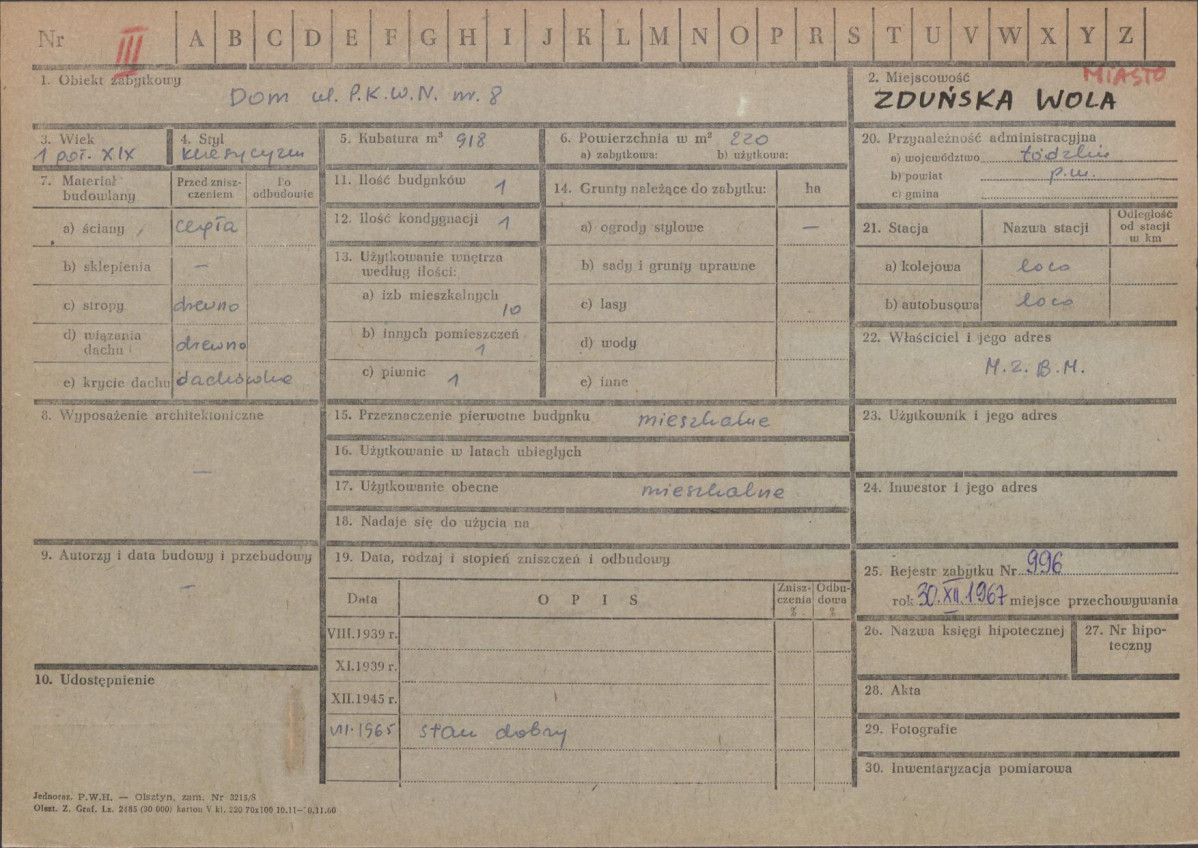 Nr III A B C D E F G H I J K L M N O P R S T U V W X Y Z
1. Obiekt zabytkowy
Dom ul. P.K.W.N. nr. 8
2. Miejscowość
MIASTO
ZDUŃSKA WOLA
3. Wiek
1 poł. XIX
4. Styl
klasycyzm
5. Kubatura m³ 918
6. Powierzchnia w m² 220
a) zabytkowa: b) użytkowa:
7. Materiał budowlany
Przed znisz-
czeniem
Po
odbudowie
a) ściany cegła
b) sklepienia —
c) stropy drewno
d) wiązania
dachu drewno
e) krycie dachu dachówka
8. Wyposażenie architektoniczne
—
9. Autorzy i data budowy i przebudowy
—
10. Udostępnienie
11. Ilość budynków 1
12. Ilość kondygnacji 1
13. Użytkowanie wnętrza
według ilości:
a) izb mieszkalnych
10
b) innych pomieszczeń
1
c) piwnic 1
14. Grunty należące do zabytku: ha
a) ogrody stylowe —
b) sady i grunty uprawne
c) lasy
d) wody
e) inne
15. Przeznaczenie pierwotne budynku mieszkalne
16. Użytkowanie w latach ubiegłych
17. Użytkowanie obecne mieszkalne
18. Nadaje się do użycia na
19. Data, rodzaj i stopień zniszczeń i odbudowy
Data
O P I S
Znisz-
czenia
%
Odbu-
dowa
%
VIII.1939 r.
XI.1939 r.
XII.1945 r.
VII.1965 stan dobry
20. Przynależność administracyjna
a) województwo łódzkie
b) powiat p.w.
c) gmina
21. Stacja
Nazwa stacji
Odległość
od stacji
w km
a) kolejowa loco
b) autobusowa loco
22. Właściciel i jego adres
M.Z.B.M.
23. Użytkownik i jego adres
24. Inwestor i jego adres
25. Rejestr zabytku Nr 996
rok 30.XII.1967 miejsce przechowywania
26. Nazwa księgi hipotecznej
27. Nr hipo-
teczny
28. Akta
29. Fotografie
30. Inwentaryzacja pomiarowa
Jednoraz. P.W.H. — Olsztyn, zam. Nr 3215/S
Olszt. Z. Graf. Lz. 2485 (30 000) karton V kl. 220 70x100 10.11—